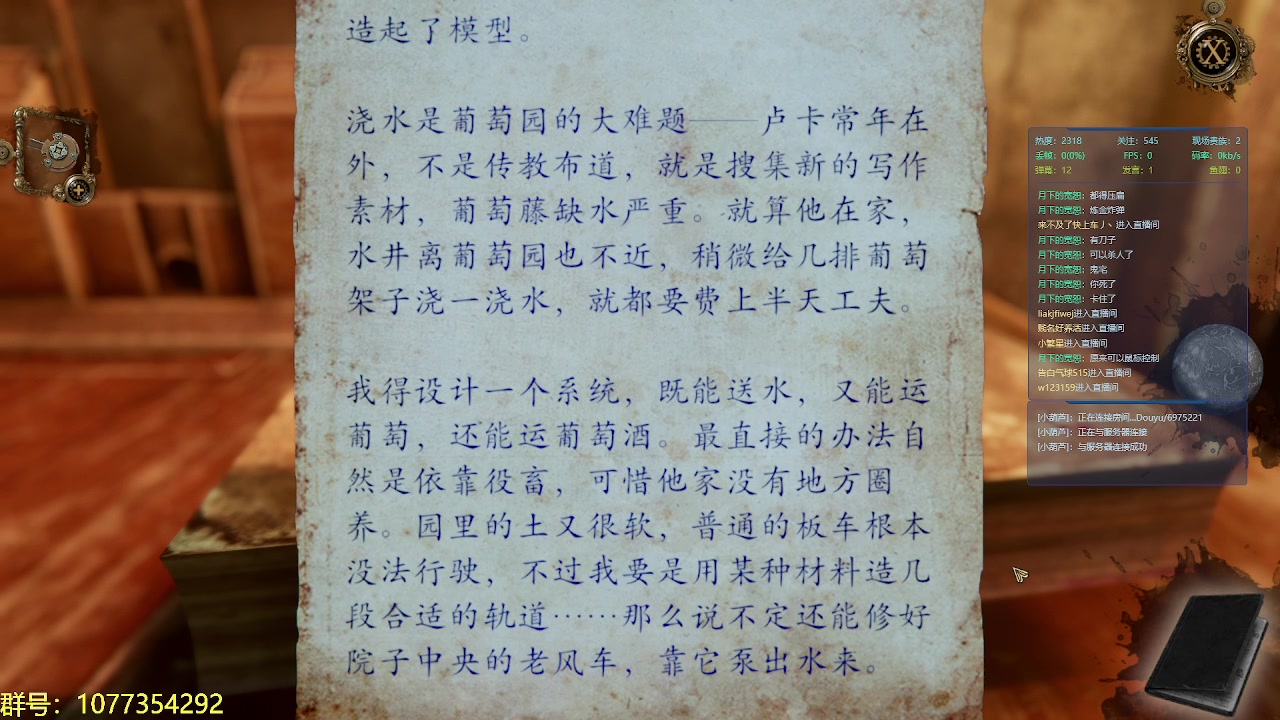 造起了模型。
浇水是葡萄园的大难题——卢卡常年在
外，不是传教布道，就是搜集新的写作
素材，葡萄藤缺水严重。就算他在家，
水井离葡萄园也不近，稍微给几排葡萄
架子浇一浇水，就都要费上半天工夫。
我得设计一个系统，既能送水，又能运
葡萄，还能运葡萄酒。最直接的办法自
然是依靠役畜，可惜他家没有地方圈
养。园里的土又很软，普通的板车根本
没法行驶，不过我要是用某种材料造几
段合适的轨道……那么说不定还能修好
院子中央的老风车，靠它泵出水来。
X
热度：2318 关注：545 现场贵族：2
丢帧：0(0%) FPS：0 码率：0kb/s
弹幕：12 发言：1 鱼翅：0
月下的宽恕：都得压扁
月下的宽恕：炼金炸弹
来不及了快上车丿丶进入直播间
月下的宽恕：有刀子
月下的宽恕：可以杀人了
月下的宽恕：鬼宅
月下的宽恕：你死了
月下的宽恕：卡住了
liakjfiwej进入直播间
贱名好养活进入直播间
小繁星进入直播间
月下的宽恕：原来可以鼠标控制
告白气球515进入直播间
w123159进入直播间
[小葫芦]：正在连接房间...Douyu/6975221
[小葫芦]：正在与服务器连接
[小葫芦]：与服务器连接成功
群号：1077354292